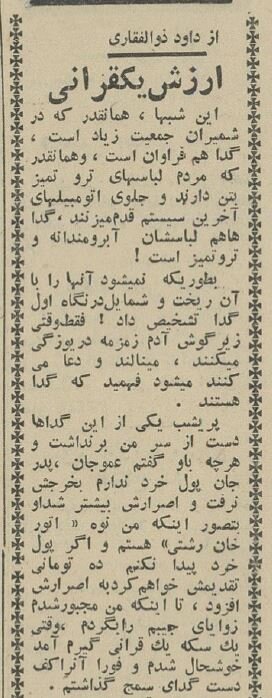 از داود ذوالفقاری
ارزش یکقرانی
این شبها ، همانقدر که در
شمیران جمعیت زیاد است ،
گدا هم فراوان است ، وهمانقدر
که مردم لباسهای ترو تمیز
بتن دارند و جلوی اتومبیلهای
آخرین سیستم قدم‌میزنند ،گدا
هاهم لباسشان آبرومندانه و
تروتمیز است !
بطوریکه نمیشود آنها را با
آن ریخت و شمایل‌درنگاه اول
گدا تشخیص داد ! فقط‌وقتی
زیرگوش آدم زمزمه دریوزگی
میکنند ، مینالند و دعا می
کنند میشود فهمید که گدا
هستند .
پریشب یکی از این گداها
دست از سر من برنداشت و
هرچه باو گفتم عموجان ،پدر
جان پول خرد ندارم بخرجش
نرفت و اصرارش بیشتر شداو
بتصور اینکه من نوه « انور
خان رشتی» هستم و اگر پول
خرد پیدا نکنم ده تومانی
تقدیمش خواهم‌کردبه اصرارش
افزود ، تا اینکه من مجبورشدم
زوایای جیبم رابگردم ،وقتی
یك سکه یك قرانی گیرم آمد
خوشحال شدم و فورا آنراکف
دست گدای سمج گذاشتم .